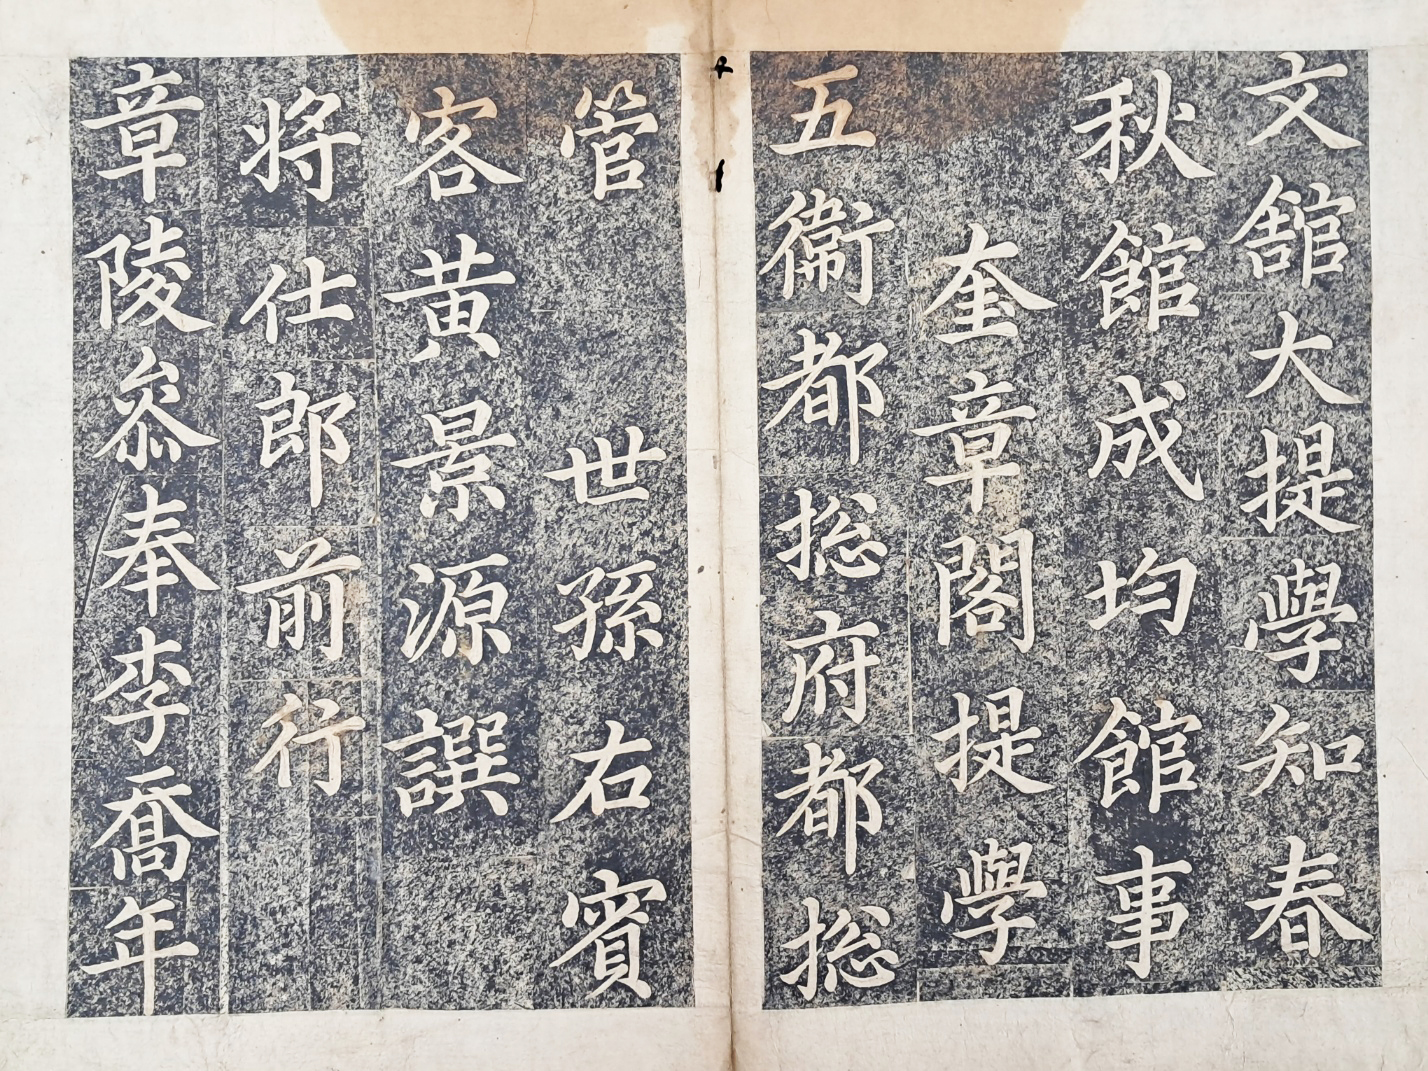 文舘大提學知春
秋館成均館事
奎章閣提學
五衛都捴府都捴
管 世孫右賓
客黃景源譔
將仕郎前行
章陵叅奉李喬年